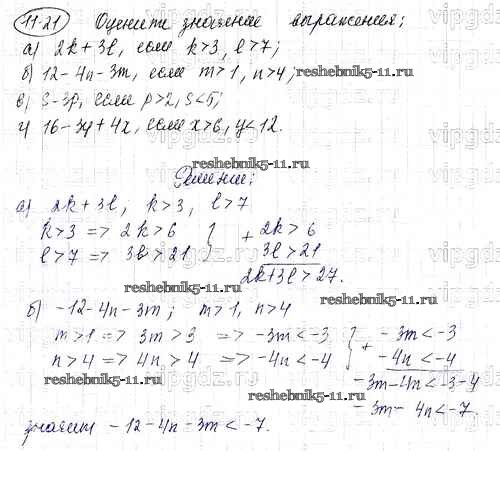 11.21 Оцените значение выражения;
а) 2k + 3l, если k > 3, l > 7;
б) 12 - 4n - 3m, если m > 1, n > 4;
reshebnik5-11.ru
в) S - 3p, если p > 2, S < 5;
г) 16 - 3y + 4x, если x > 6, y < 12.
reshebnik5-11.ru
Решение:
а) 2k + 3l; k > 3, l > 7
k > 3 => 2k > 6 } + 2k > 6
l > 7 => 3l > 21 3l > 21
2k + 3l > 27.
reshebnik5-11.ru
reshebnik5-11.ru
б) -12 - 4n - 3m; m > 1, n > 4
m > 1 => 3m > 3 => -3m < -3 } + -3m < -3
n > 4 => 4n > 4 => -4n < -4 -4n < -4
reshebnik5-11.ru
-3m - 4n < -3 - 4
-3m - 4n < -7.
значит -12 - 4n - 3m < -7.
reshebnik5-11.ru